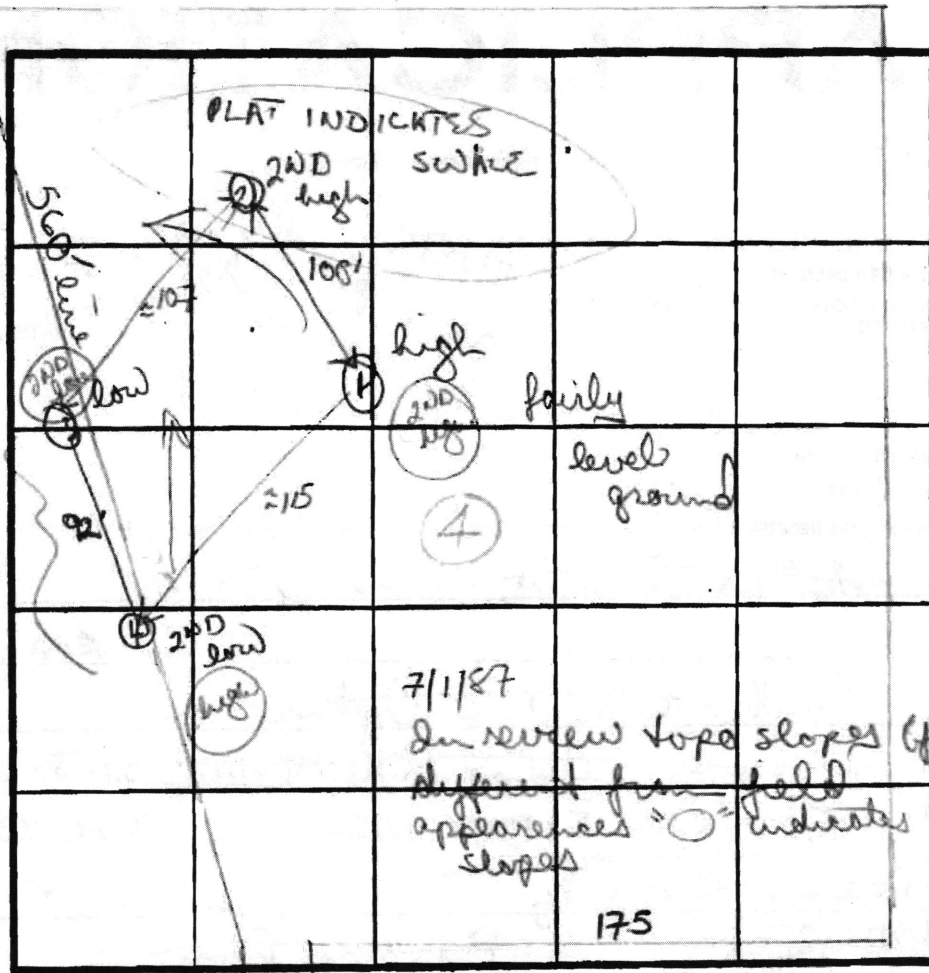 PLAT INDICATES
SWALE
2ND
high
2
560' line
108'
≈107
high
1
2ND
low
low
3
2ND
high
fairly
level
ground
≈115
92'
4
4
2ND
low
high
7/1/87
In review topo slopes (if
different from field
appearences "○" indicates
slopes
175